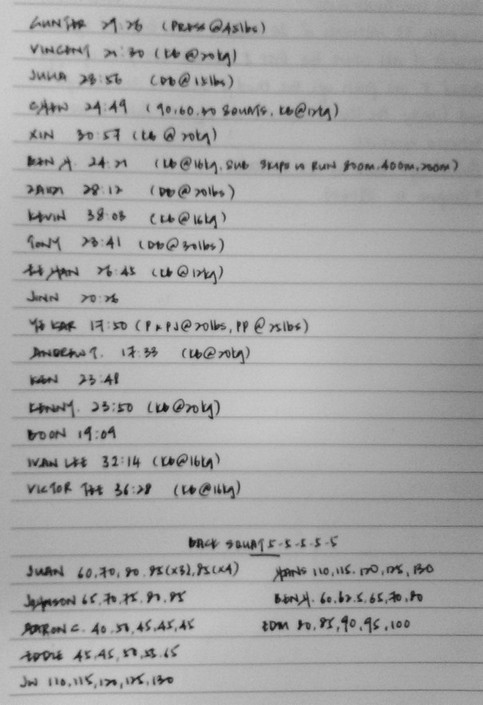 GUNTAR 29:26 (PRESS @45lbs)
VINCENT 21:30 (KB @20kg)
JULIA 28:56 (DB @15lbs)
24:49 (90,60,30 SQUATS, KB@12kg)
XIN 30:57 (KB @ 20kg)
BEN H. 24:21 (KB@16kg, SUB SKIPS W RUN 800m, 400m, 200m)
28:12 (DB @20lbs)
KEVIN 38:03 (KB@16kg)
TONY 23:41 (DB@30lbs)
26:45 (KB@12kg)
JINN 20:26
YI KAR 17:50 (P&PJ@20lbs, PP @25lbs)
ANDREW T. 17:33 (KB@20kg)
KEN 23:48
KENNY. 23:50 (KB@20kg)
BOON 19:09
IVAN LEE 32:14 (KB@16kg)
VICTOR TEE 36:28 (KB@16kg)
BACK SQUAT 5-5-5-5-5
JUAN 60,70,80,85(x3),85(x4)
HANS 110,115,120,125,130
65,70,75,80,85
BEN H. 60,62.5,65,70,80
AARON C. 40,50,45,45,45
EDM 80,85,90,95,100
EDDIE 45,45,50,55,65
JW 110,115,120,125,130